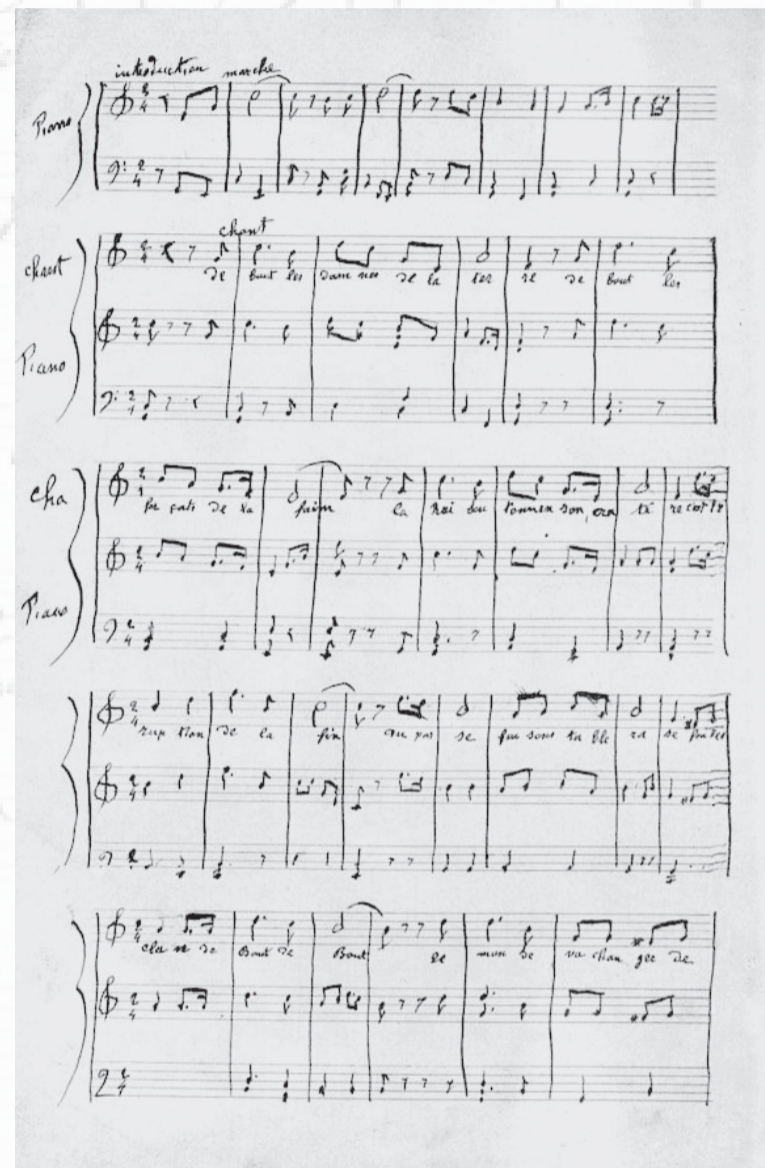 introduction marche
Piano
2/4
chant
chant
de bout les dam nés de la ter re de bout les
Piano
Cha
for çats de la faim la rai son tonne en son cra tè re c'est l'é
Piano
rup tion de la fin du pas se fai sons ta ble ra se foules
cla ve de Bout de Bout le mon de va chan ger de